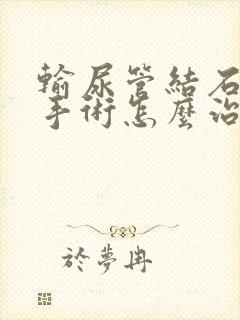 輸尿管結石
手術怎麼治
於夢冉